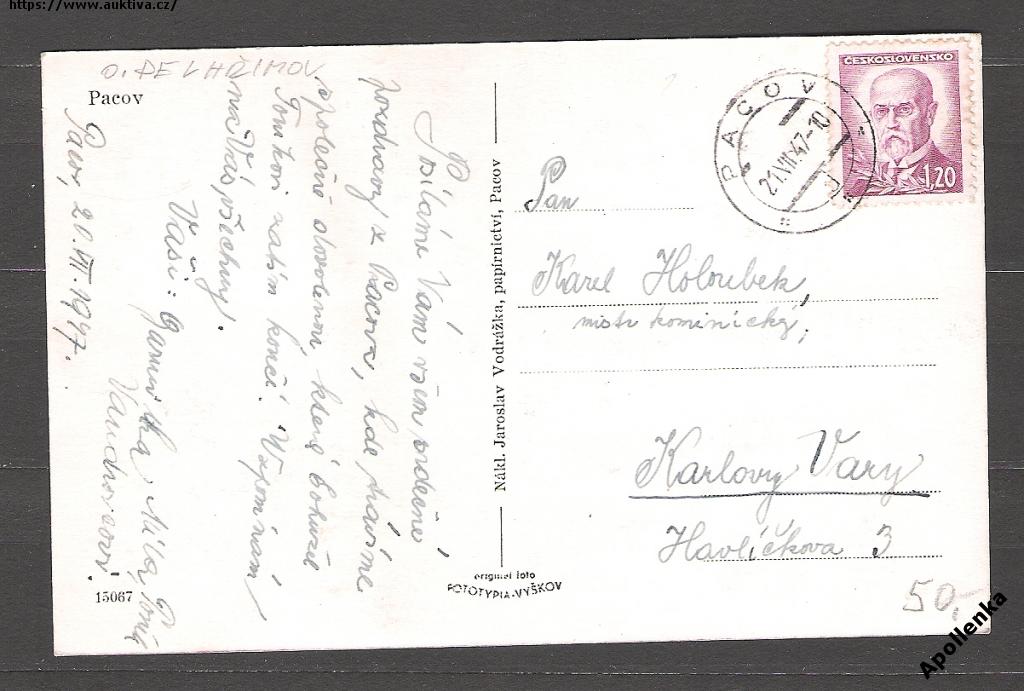 https://www.auktiva.cz/
O. PELHŘIMOV
Pacov
Posíláme Vám všem srdečné
pozdravy z Pacova, kde trávíme
společně dovolenou která bohužel
Tomkovi zatím končí. Vzpomínám
na Vás, všechny.
Vaši:
Míla, Toník
Pacov, 20.VII.1947.
15067
Nákl. Jaroslav Vodrážka, papírnictví, Pacov
original foto
FOTOTYPIA-VYŠKOV
ČESKOSLOVENSKO
1,20
PACOV
21.VII.47-10
Pan
Karel Holoubek,
mistr kominický,
Karlovy Vary
Havlíčkova 3
50.-
Apollenka